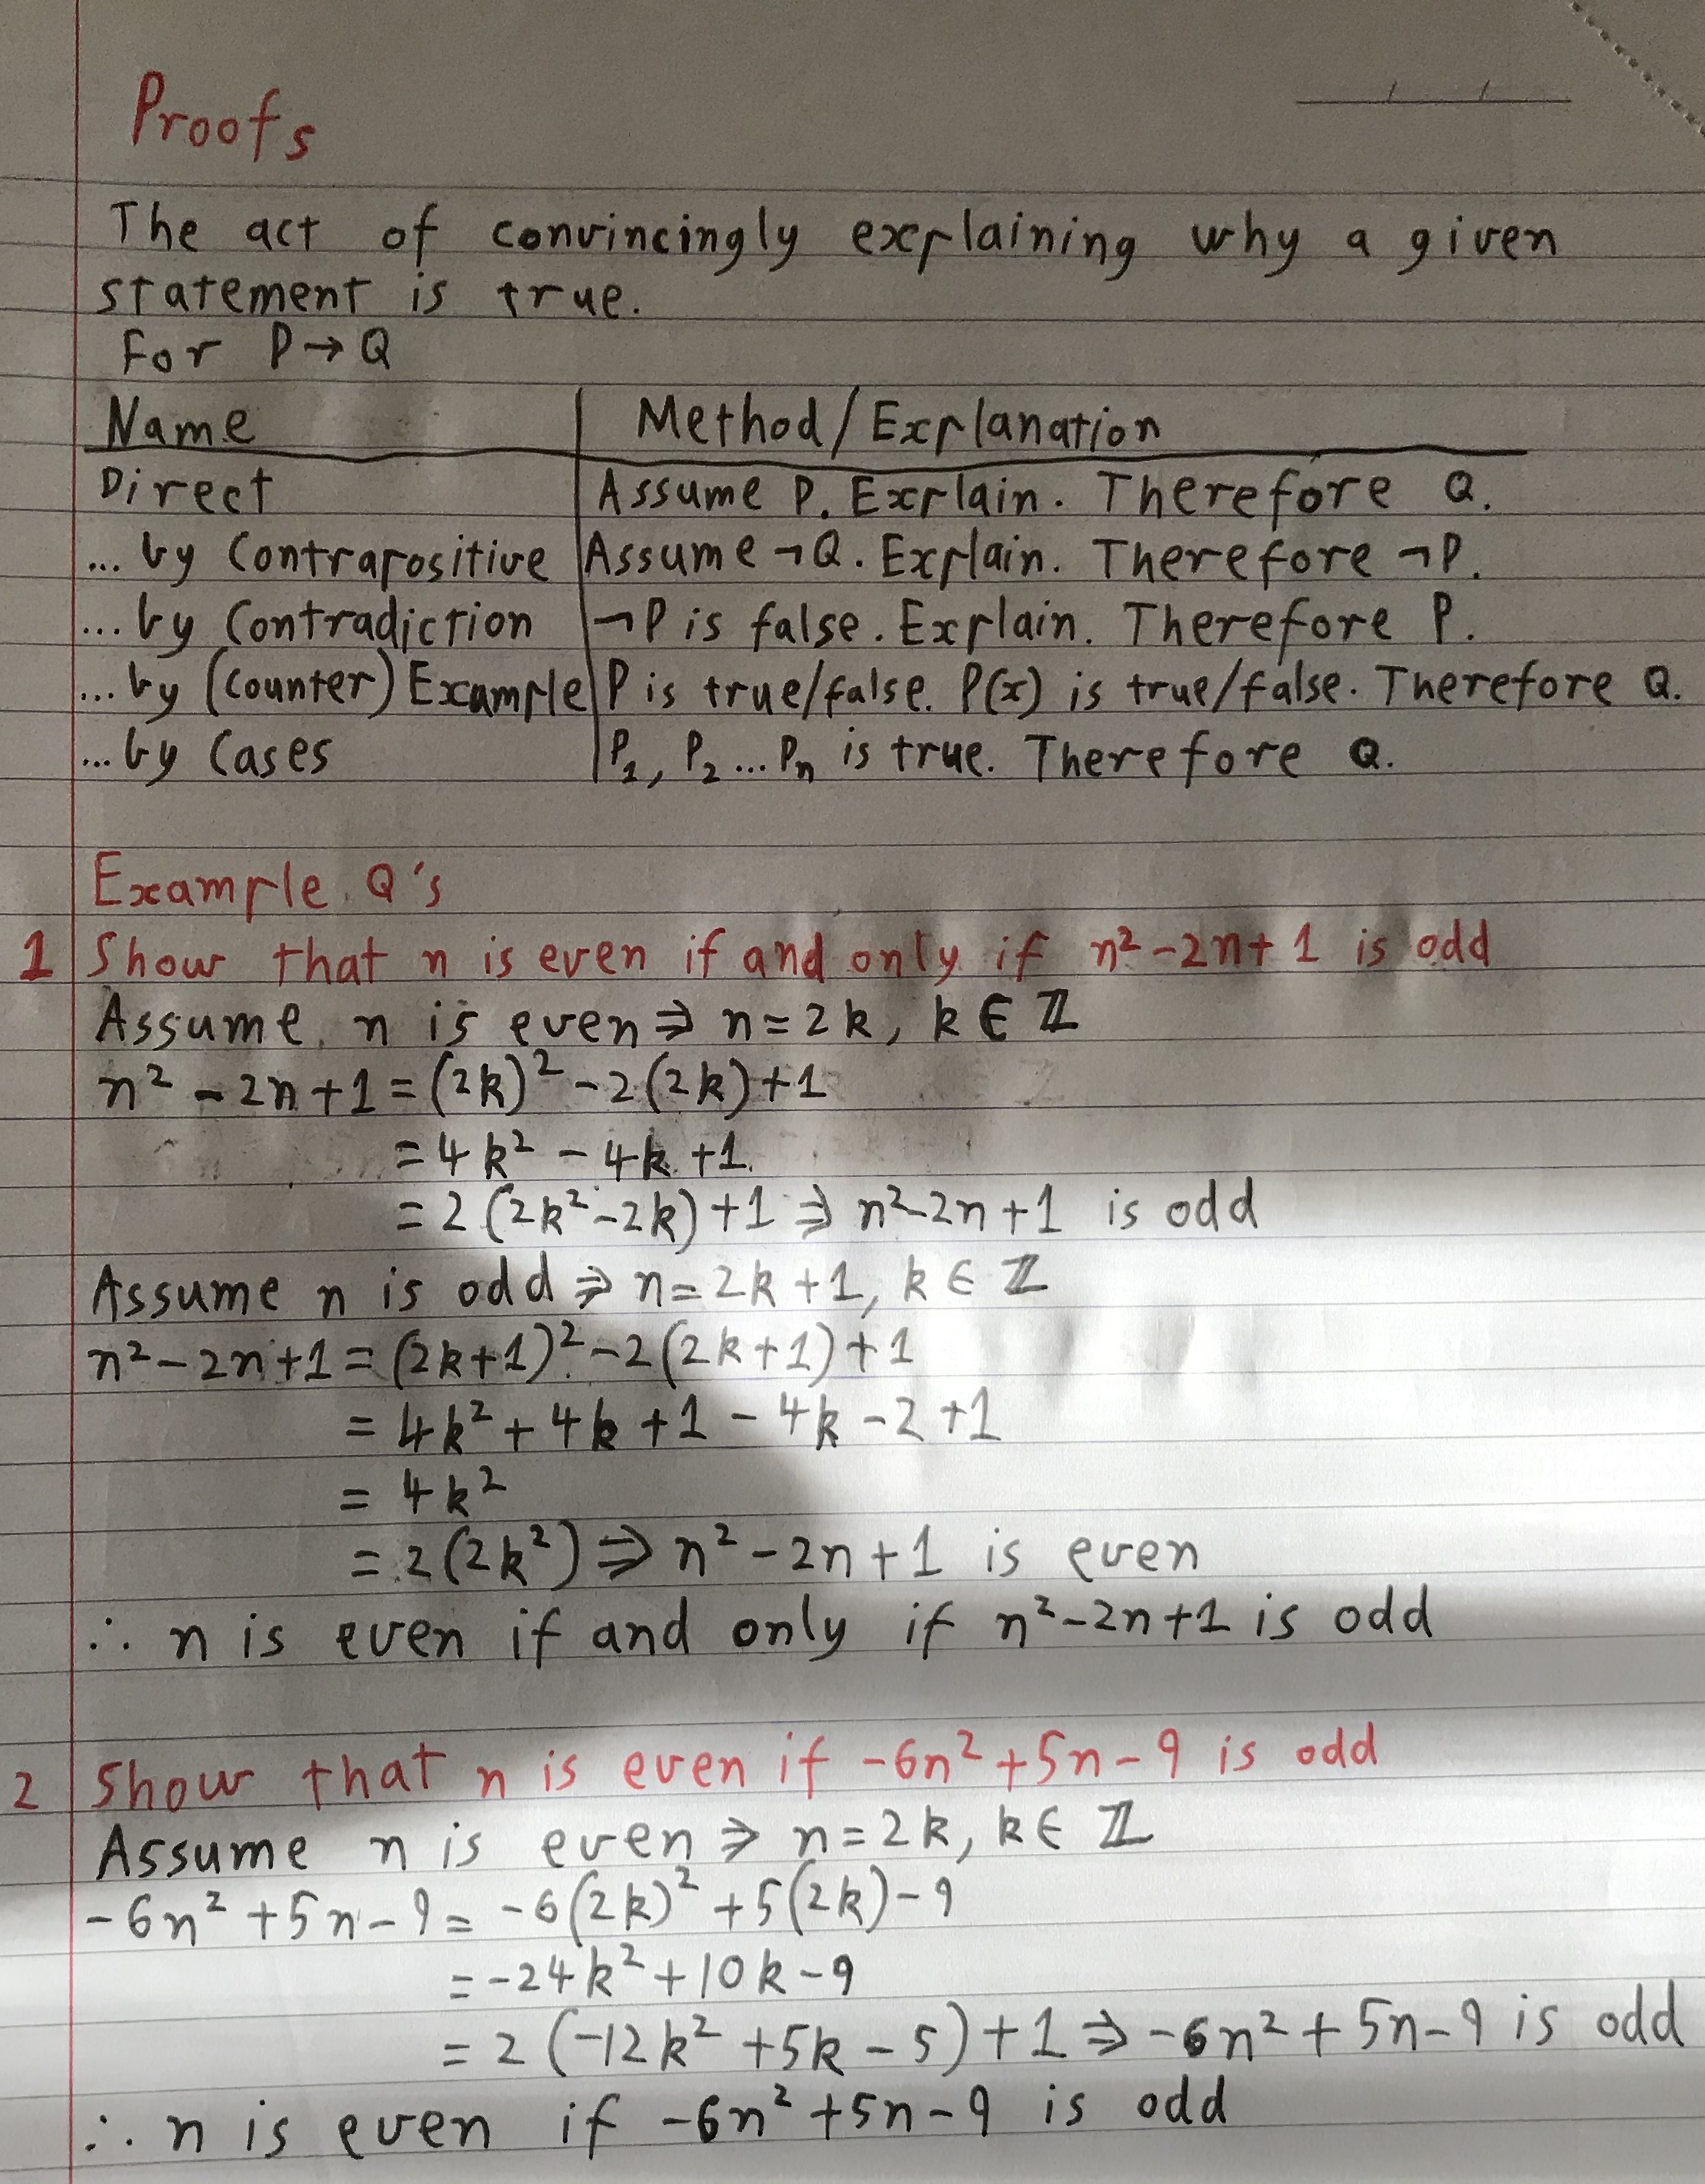 Proofs
The act of convincingly explaining why a given
statement is true.
For P→Q
Name | Method/Explanation
Direct | Assume P. Explain. Therefore Q.
...by Contrapositive | Assume ¬Q. Explain. Therefore ¬P.
...by Contradiction | ¬P is false. Explain. Therefore P.
...by (Counter) Example | P is true/false. P(x) is true/false. Therefore Q.
...by Cases | P₁, P₂...Pₙ is true. Therefore Q.
Example Q's
1 Show that n is even if and only if n²-2n+1 is odd
Assume n is even ⇒ n=2k, k∈ℤ
n²-2n+1=(2k)²-2(2k)+1
=4k²-4k+1
=2(2k²-2k)+1 ⇒ n²-2n+1 is odd
Assume n is odd ⇒ n=2k+1, k∈ℤ
n²-2n+1=(2k+1)²-2(2k+1)+1
=4k²+4k+1-4k-2+1
=4k²
=2(2k²) ⇒ n²-2n+1 is even
∴ n is even if and only if n²-2n+1 is odd
2 Show that n is even if -6n²+5n-9 is odd
Assume n is even ⇒ n=2k, k∈ℤ
-6n²+5n-9=-6(2k)²+5(2k)-9
=-24k²+10k-9
=2(-12k²+5k-5)+1 ⇒ -6n²+5n-9 is odd
∴ n is even if -6n²+5n-9 is odd